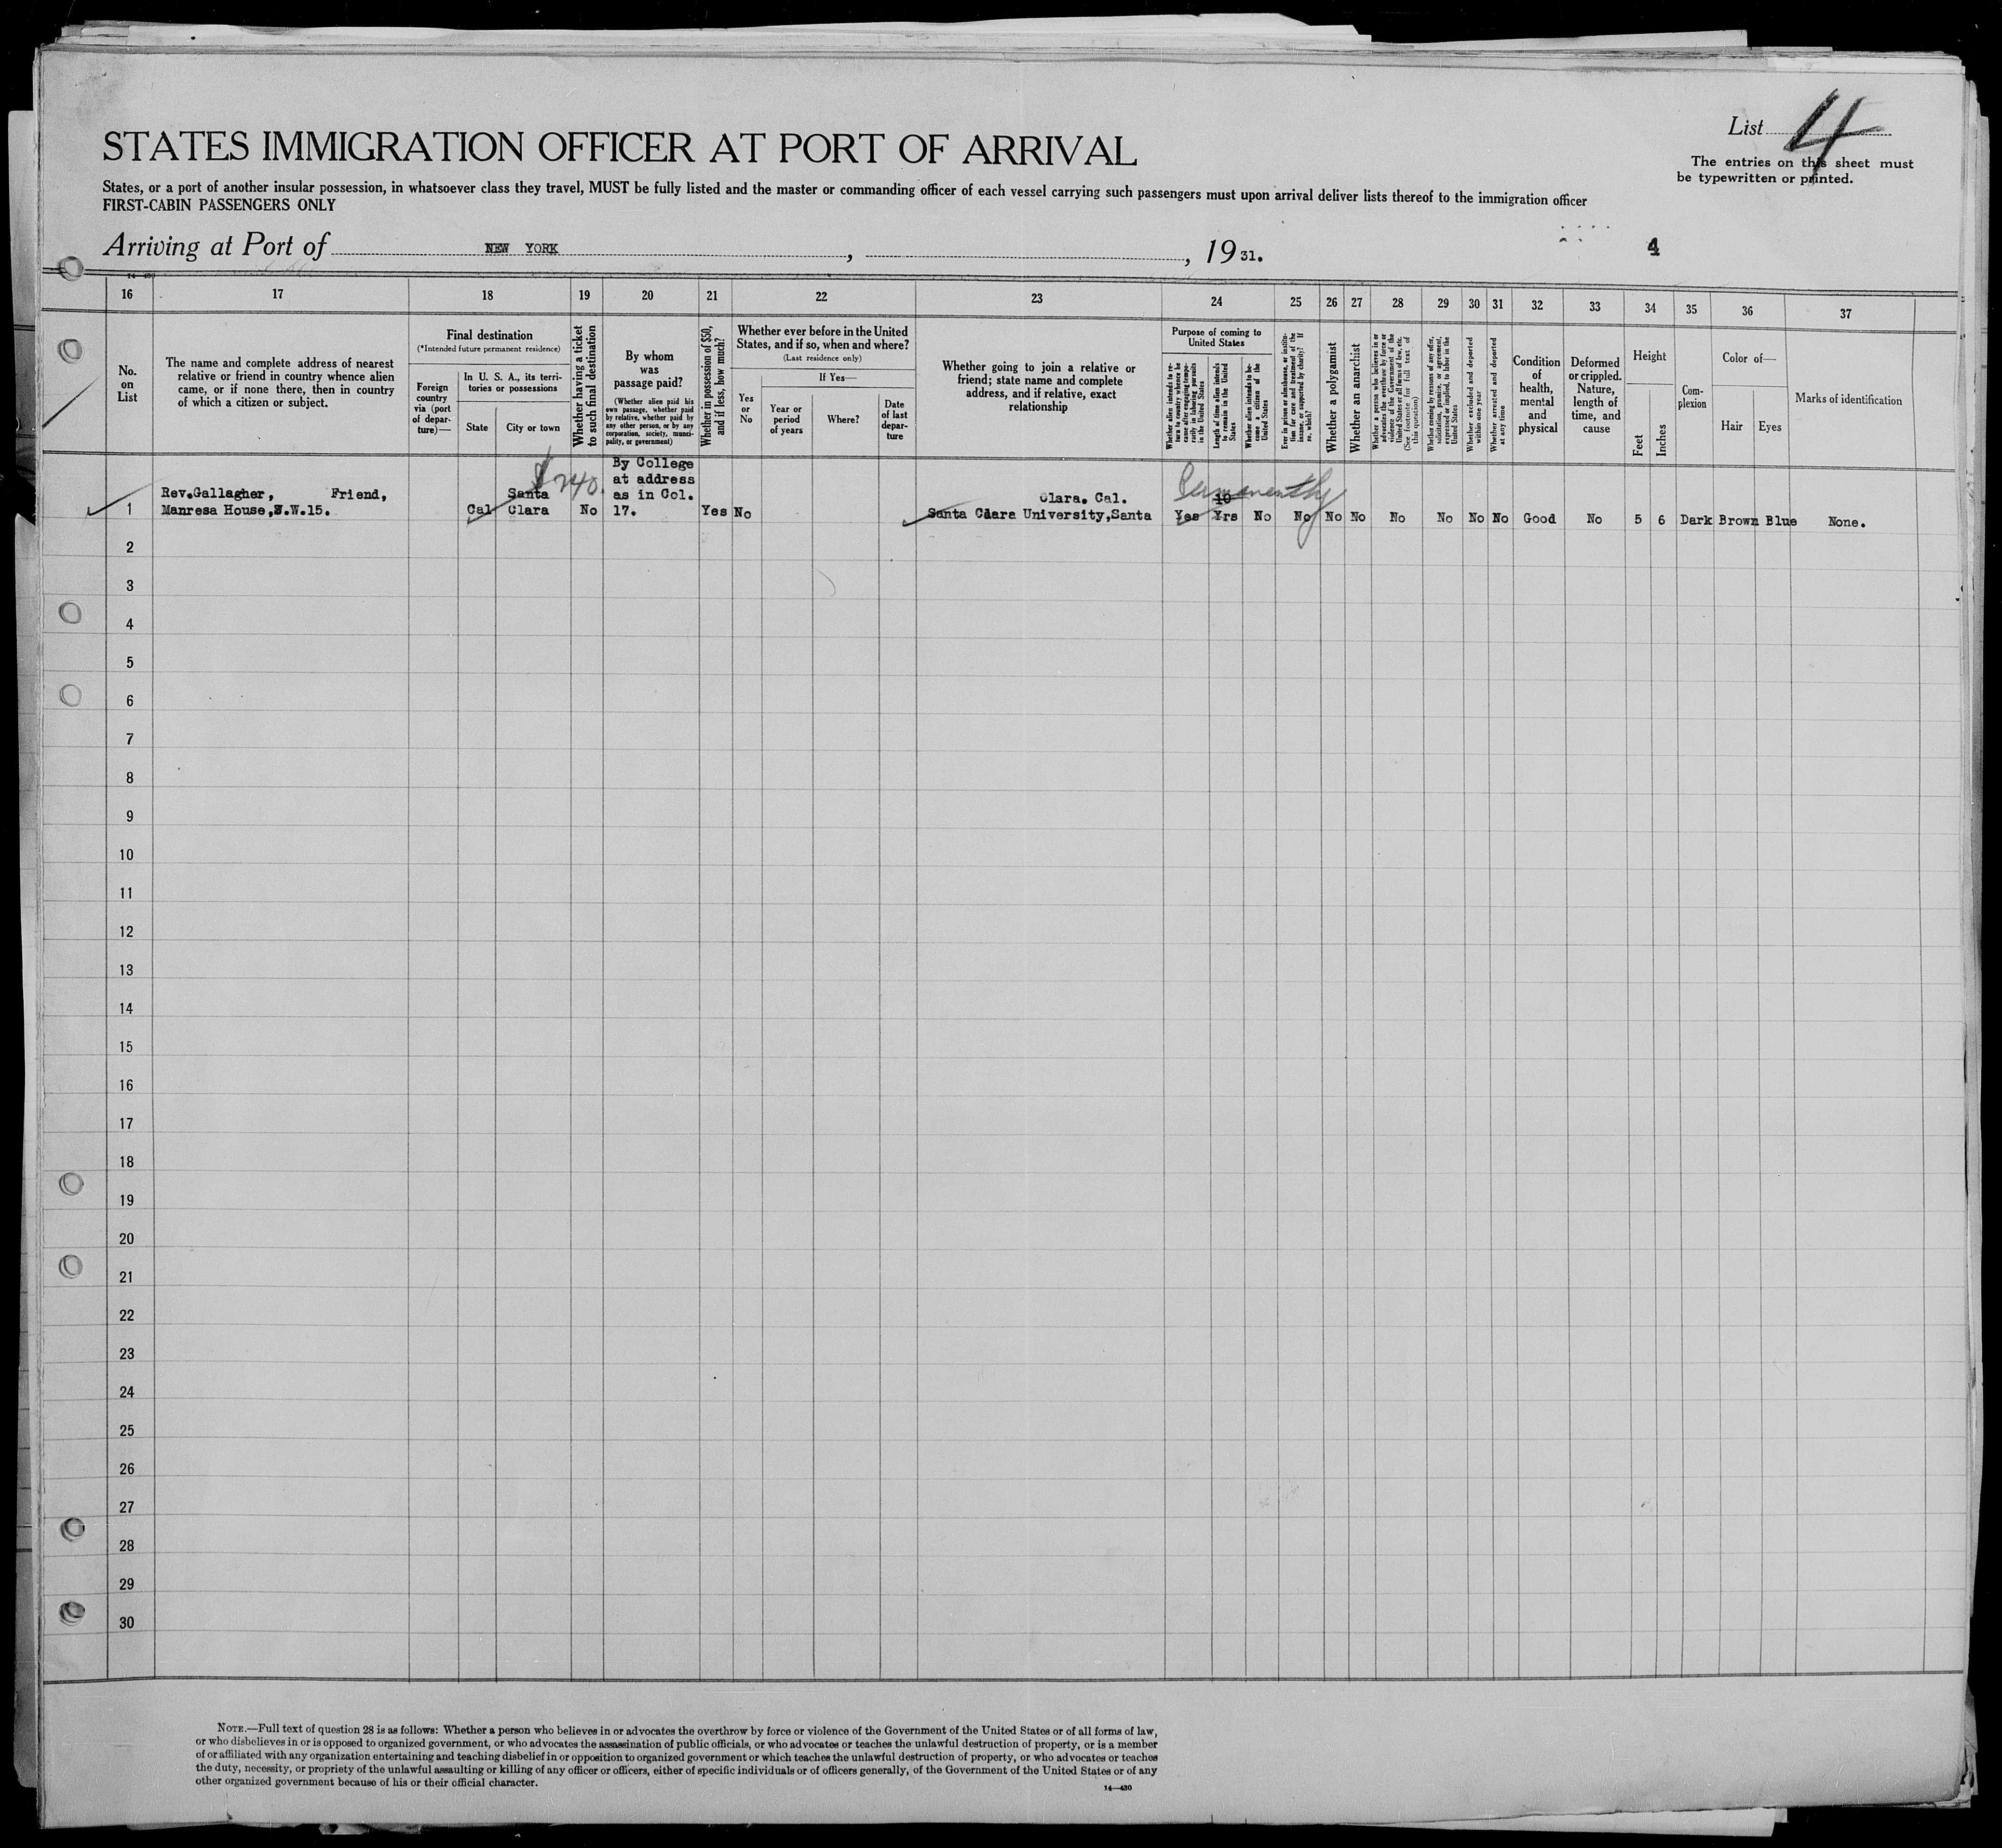 List 4
STATES IMMIGRATION OFFICER AT PORT OF ARRIVAL
The entries on this sheet must
be typewritten or printed.
States, or a port of another insular possession, in whatsoever class they travel, MUST be fully listed and the master or commanding officer of each vessel carrying such passengers must upon arrival deliver lists thereof to the immigration officer
FIRST-CABIN PASSENGERS ONLY
Arriving at Port of NEW YORK, , 1931.
4
14-430
16 17 18 19 20 21 22 23 24 25 26 27 28 29 30 31 32 33 34 35 36 37
No.
on
List
The name and complete address of nearest
relative or friend in country whence alien
came, or if none there, then in country
of which a citizen or subject.
Final destination
(*Intended future permanent residence)
Foreign
country
via (port
of depar-
ture)—
In U. S. A., its terri-
tories or possessions
State
City or town
Whether having a ticket
to such final destination
By whom
was
passage paid?
(Whether alien paid his
own passage, whether paid
by relative, whether paid by
any other person, or by any
corporation, society, munici-
pality, or government)
Whether in possession of $50,
and if less, how much?
Whether ever before in the United
States, and if so, when and where?
(Last residence only)
Yes
or
No
If Yes—
Year or
period
of years
Where?
Date
of last
depar-
ture
Whether going to join a relative or
friend; state name and complete
address, and if relative, exact
relationship
Purpose of coming to
United States
Whether alien intends to re-
turn to country whence he
came after engaging tempo-
rarily in laboring pursuits
in the United States
Length of time alien intends
to remain in the United
States
Whether alien intends to be-
come a citizen of the
United States
Ever in prison or almshouse, or institu-
tion for care and treatment of the
insane, or supported by charity? If
so, which?
Whether a polygamist
Whether an anarchist
Whether a person who believes in or
advocates the overthrow by force or
violence of the Government of the
United States or all forms of law, etc.
(See footnote for full text of
this question)
Whether coming by reasons of any offer,
solicitation, promise, or agreement,
expressed or implied, to labor in the
United States
Whether excluded and deported
within one year
Whether arrested and deported
at any time
Condition
of
health,
mental
and
physical
Deformed
or crippled.
Nature,
length of
time, and
cause
Height
Feet
Inches
Com-
plexion
Color of—
Hair
Eyes
Marks of identification
1
Rev.Gallagher, Friend,
Manresa House,S.W.15.
Cal
$240.
Santa
Clara
No
By College
at address
as in Col.
17.
Yes
No
Clara. Cal.
Santa Clara University,Santa
Permanently
10
Yes Yrs No No No No No No No No Good No 5 6 Dark Brown Blue None.
2
3
4
5
6
7
8
9
10
11
12
13
14
15
16
17
18
19
20
21
22
23
24
25
26
27
28
29
30
NOTE.—Full text of question 28 is as follows: Whether a person who believes in or advocates the overthrow by force or violence of the Government of the United States or of all forms of law,
or who disbelieves in or is opposed to organized government, or who advocates the assassination of public officials, or who advocates or teaches the unlawful destruction of property, or is a member
of or affiliated with any organization entertaining and teaching disbelief in or opposition to organized government or which teaches the unlawful destruction of property, or who advocates or teaches
the duty, necessity, or propriety of the unlawful assaulting or killing of any officer or officers, either of specific individuals or of officers generally, of the Government of the United States or of any
other organized government because of his or their official character.
14—430